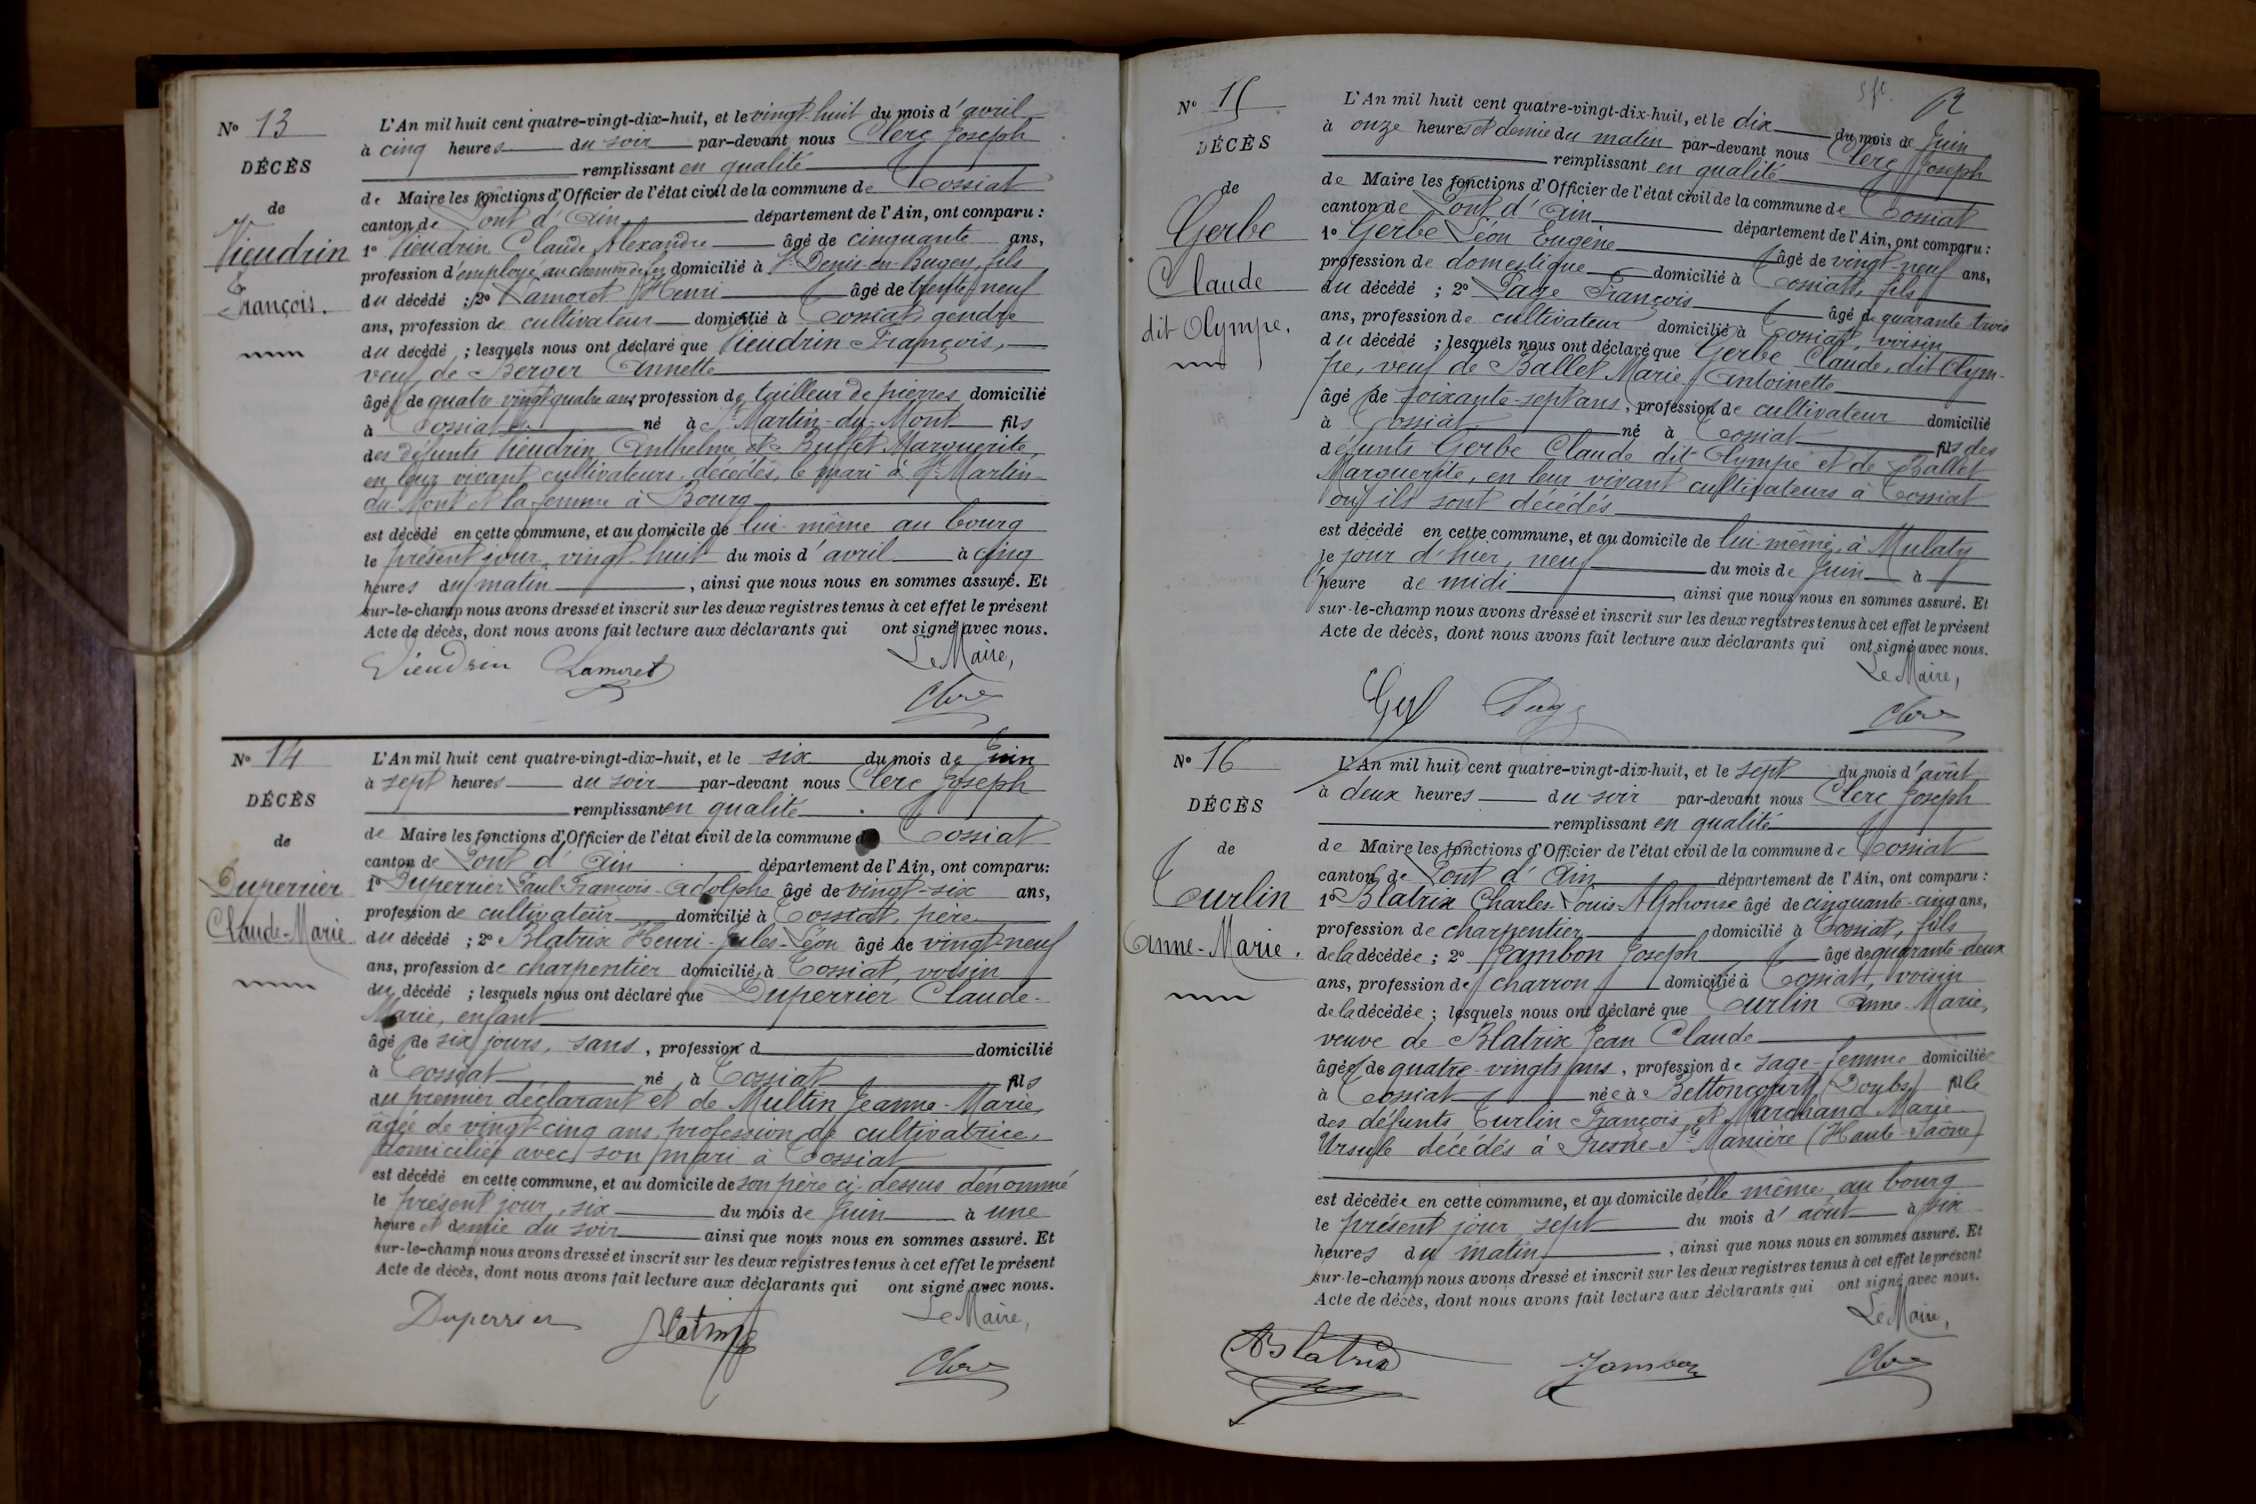 N° 13
DÉCÈS
de
Vieudrin
François.
L'An mil huit cent quatre-vingt-dix-huit, et le vingt-huit du mois d'avril
à cinq heures du soir par-devant nous Clerc Joseph
remplissant en qualité
de Maire les fonctions d'Officier de l'état civil de la commune de Tossiat
canton de Pont d'Ain département de l'Ain, ont comparu :
1° Vieudrin Claude Alexandre âgé de cinquante ans,
profession d'employé au chemin de fer domicilié à St Denis-en-Bugey, fils
du décédé ; 2° Lamoret Henri âgé de trente neuf
ans, profession de cultivateur domicilié à Tossiat, gendre
du décédé ; lesquels nous ont déclaré que Vieudrin François,
veuf de Berger Annette
âgé de quatre vingt quatre ans profession de tailleur de pierres domicilié
à Tossiat né à St Martin-du-Mont fils
des défunts Vieudrin Anthelme et Buffet Marguerite,
en leur vivant cultivateurs, décédés, le mari à St Martin-
du-Mont et la femme à Bourg
est décédé en cette commune, et au domicile de lui-même au bourg
le présent jour, vingt-huit du mois d'avril à cinq
heures du matin, ainsi que nous nous en sommes assuré. Et
sur-le-champ nous avons dressé et inscrit sur les deux registres tenus à cet effet le présent
Acte de décès, dont nous avons fait lecture aux déclarants qui ont signé avec nous.
Vieudrin Lamoret Le Maire,
Clerc
N° 14
DÉCÈS
de
Duperrier
Claude-Marie
L'An mil huit cent quatre-vingt-dix-huit, et le six du mois de Juin
à sept heures du soir par-devant nous Clerc Joseph
remplissant en qualité
de Maire les fonctions d'Officier de l'état civil de la commune de Tossiat
canton de Pont d'Ain département de l'Ain, ont comparu :
1° Duperrier Paul-François-Adolphe âgé de vingt-six ans,
profession de cultivateur domicilié à Tossiat, père
du décédé ; 2° Blatrix Henri-Jules-Léon âgé de vingt-neuf
ans, profession de charpentier domicilié à Tossiat, voisin
du décédé ; lesquels nous ont déclaré que Duperrier Claude-
Marie, enfant
âgé de six jours, sans, profession d domicilié
à Tossiat né à Tossiat fils
du premier déclarant et de Multin Jeanne-Marie,
âgée de vingt-cinq ans, profession de cultivatrice,
domiciliée avec son mari à Tossiat
est décédé en cette commune, et au domicile de son père ci-dessus dénommé
le présent jour, six du mois de Juin à une
heure et demie du soir ainsi que nous nous en sommes assuré. Et
sur-le-champ nous avons dressé et inscrit sur les deux registres tenus à cet effet le présent
Acte de décès, dont nous avons fait lecture aux déclarants qui ont signé avec nous.
Duperrier Blatrix Le Maire,
Clerc
N° 15
DÉCÈS
de
Gerbe
Claude
dit Olympe.
L'An mil huit cent quatre-vingt-dix-huit, et le dix du mois de Juin
à onze heures et demie du matin par-devant nous Clerc Joseph
remplissant en qualité
de Maire les fonctions d'Officier de l'état civil de la commune de Tossiat
canton de Pont d'Ain département de l'Ain, ont comparu :
1° Gerbe Léon Eugène âgé de vingt-neuf ans,
profession de domestique domicilié à Tossiat, fils
du décédé ; 2° François âgé de quarante trois
ans, profession de cultivateur domicilié à Tossiat, voisin
du décédé ; lesquels nous ont déclaré que Gerbe Claude, dit Olym-
pe, veuf de Ballet Marie Antoinette
âgé de soixante-sept ans, profession de cultivateur domicilié
à Tossiat né à Tossiat fils des
défunts Gerbe Claude dit Olympe et de Ballet
Marguerite, en leur vivant cultivateurs à Tossiat
où ils sont décédés
est décédé en cette commune, et au domicile de lui-même, à Mulaty
le jour d'hier, neuf du mois de Juin à
l'heure de midi, ainsi que nous nous en sommes assuré. Et
sur-le-champ nous avons dressé et inscrit sur les deux registres tenus à cet effet le présent
Acte de décès, dont nous avons fait lecture aux déclarants qui ont signé avec nous.
Le Maire,
Clerc
N° 16
DÉCÈS
de
Turlin
Anne-Marie.
L'An mil huit cent quatre-vingt-dix-huit, et le sept du mois d'août
à deux heures du soir par-devant nous Clerc Joseph
remplissant en qualité
de Maire les fonctions d'Officier de l'état civil de la commune de Tossiat
canton de Pont d'Ain département de l'Ain, ont comparu :
1° Blatrix Charles-Louis-Alphonse âgé de cinquante-cinq ans,
profession de charpentier domicilié à Tossiat, fils
de la décédée ; 2° Jambon Joseph âgé de quarante-deux
ans, profession de charron domicilié à Tossiat, voisin
de la décédée ; lesquels nous ont déclaré que Turlin Anne-Marie,
veuve de Blatrix Jean Claude
âgée de quatre-vingts ans, profession de sage-femme domiciliée
à Tossiat née à Bettoncourt (Doubs) fille
des défunts Turlin François et Marchand Marie
Ursule décédés à Fresne-St Mamère (Haute-Saône)
est décédée en cette commune, et au domicile d'elle même, au bourg
le présent jour sept du mois d'août à six
heures du matin, ainsi que nous nous en sommes assuré. Et
sur-le-champ nous avons dressé et inscrit sur les deux registres tenus à cet effet le présent
Acte de décès, dont nous avons fait lecture aux déclarants qui ont signé avec nous.
Le Maire,
Blatrix Jambon Clerc